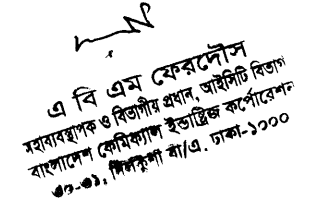 এ বি এম ফেরদৌস
মহাব্যবস্থাপক ও বিভাগীয় প্রধান, আইসিটি বিভাগ
বাংলাদেশ কেমিক্যাল ইন্ডাস্ট্রিজ কর্পোরেশন
৩০-৩১, দিলকুশা বা/এ, ঢাকা-১০০০